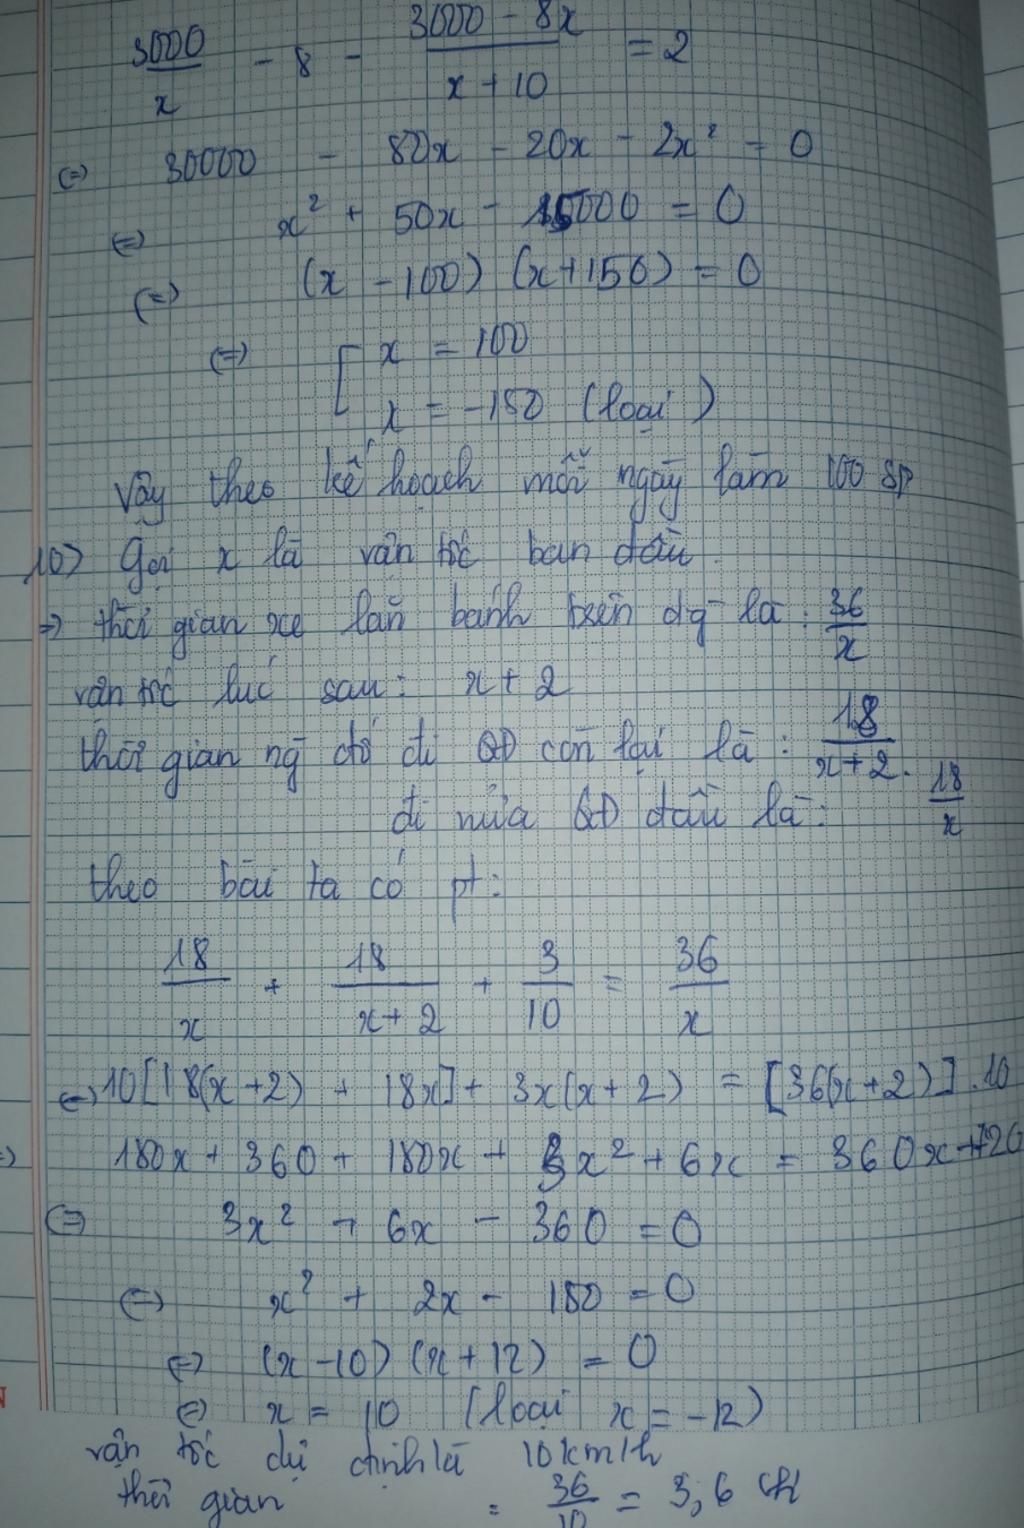 3000/x - 8 - (3000 - 8x)/(x + 10) = 2
(=) 30000 - 80x - 20x - 2x² = 0
(=) x² + 50x - 15000 = 0
(=) (x - 100) (x + 150) = 0
(=) [ x = 100
x = -150 (loại)
Vậy theo kế hoạch mỗi ngày làm 100 sp
10) Gọi x là vận tốc ban đầu
=> thời gian xe lăn bánh trên đg là : 36/x
vận tốc lúc sau : x + 2
thời gian ng đó đi QĐ còn lại là : 18/(x + 2) .
đi nửa QĐ đầu là : 18/x
theo bài ta có pt :
18/x + 18/(x + 2) + 3/10 = 36/x
(=) 10[18(x + 2) + 18x] + 3x(x + 2) = [36(x + 2)] . 10
=) 180x + 360 + 180x + 3x² + 6x = 360x + 720
(=) 3x² + 6x - 360 = 0
(=) x² + 2x - 180 = 0
(=) (x - 10) (x + 12) = 0
(=) x = 10 (loại x = -12)
vận tốc dự định là 10 km/h
thời gian = 36/10 = 3,6 (h)